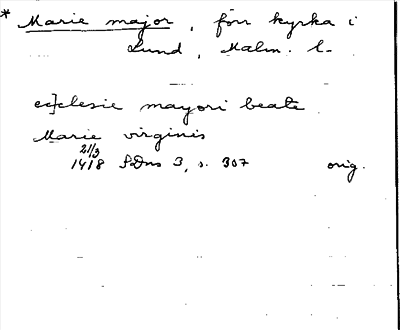 * Marie major, förr kyrka i
Lund, Malm. l.
ec]clesie mayori beate
Marie virginis
21/3
1418 SDns 3, s. 307 orig.